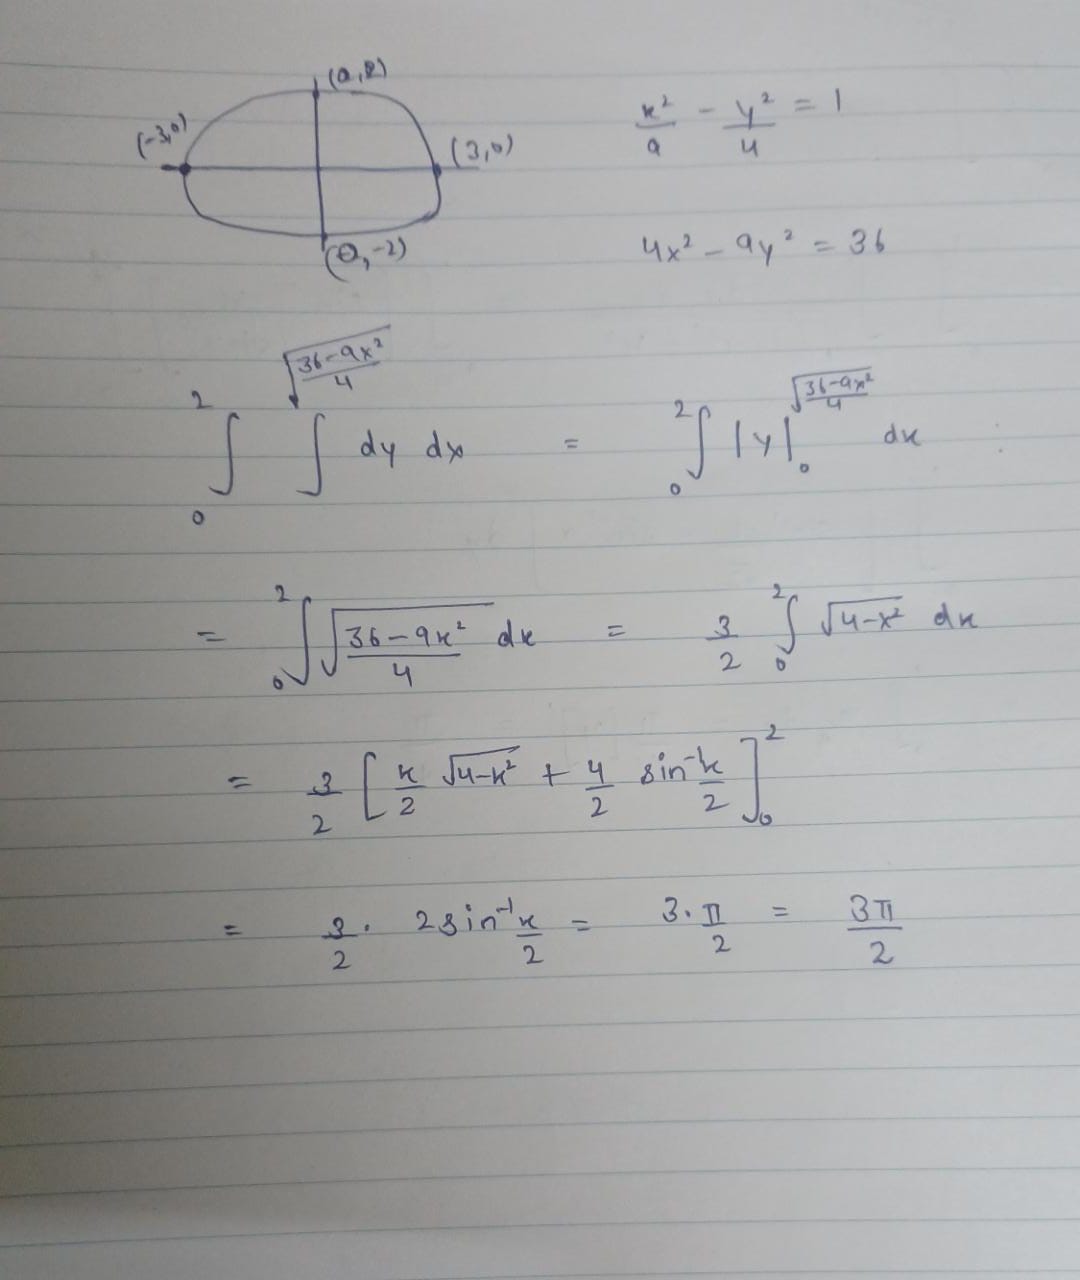 (0,2)
(-3,0)
(3,0)
(0,-2)
x²/9 - y²/4 = 1
4x² - 9y² = 36
∫₀² ∫^√((36-9x²)/4) dy dx = ∫₀² |y|₀^√((36-9x²)/4) dx
= ∫₀² √((36-9x²)/4) dx = 3/2 ∫₀² √(4-x²) dx
= 3/2 [x/2 √(4-x²) + 4/2 sin⁻¹ x/2]₀²
= 3/2 · 2 sin⁻¹ x/2 = 3·π/2 = 3π/2